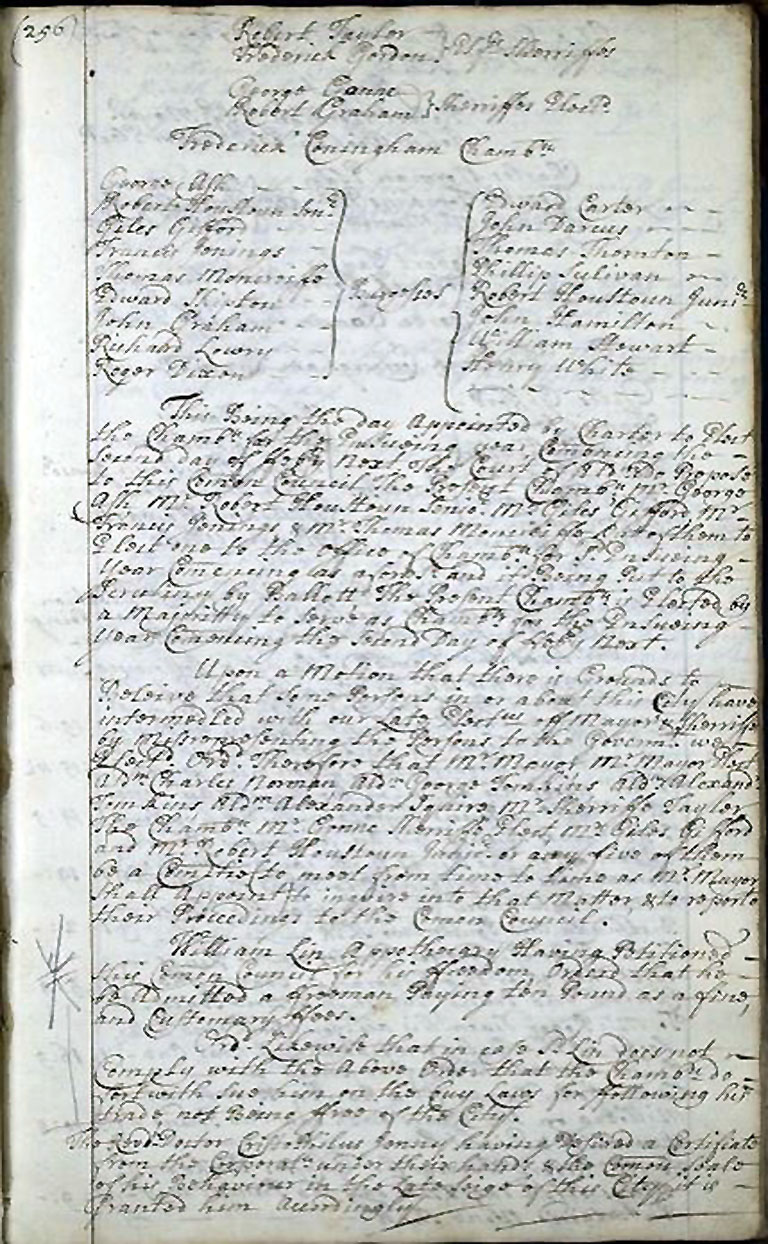 (256)
Robert Taylor
Frederick Gordon } Sherriffes
George Gonne
Robert Graham } Sherriffes Elect
Frederick Coningham Chambn
George Ash
Robert Houstoun Senr
Giles Gifford
Francis Jenings
Thomas Moncrieffe
Edward Skipton
John Graham
Richard Lowry
Roger Dixon
Burgesses
Edward Carter
John Darcus
Thomas Thornton
Phillip Sulivan
Robert Houstoun Junr
John Hamilton
William Stewart
Henry White
This Being the day Appointed by Charter to Elect
the Chambn for the Ensueing year Comencing the
Second day of Feby Next The Court of Aldn do Propose
to this Comon Council The Present Chambn Mr George
Ash Mr Robert Houstoun Senr Mr Giles Gifford Mr
Francis Jenings & Mr Thomas Moncrieffe out of them to
Elect one to the office of Chambn for sd Ensueing
Year Comencing as aforesd and it Being Put to the
Scrutiny by Ballott The Present Chambn is Elected by
a Majority to serve as Chambn for the Ensueing
year Comencing the Second Day of Feby Next.
Upon a Motion that there is Grounds to
Beleive that Some Persons in or about this City have
intermedled with our Late Elections of Mayor & Sherriffs
by Misrepresenting the Persons to the Governmt we
Elected. Ord. Therefore that Mr Mayor Mr Mayor Elect
Aldn Charles Norman Aldn George Tomkins Aldn Alexandr
Tomkins Aldn Alexander Squire Mr Sherriffe Taylor
The Chambn Mr Gonne Sherriffe Elect Mr Giles Gifford
and Mr Robert Houstoun Junr or any five of them
be a Comittee to meet from time to time as Mr Mayor
Shall Appoint to inquire into that Matter & to report
their Procedings to the Comon Council.
William Lin Appothecary Having Petitioned
this Comon Council for his ffreedom, Orderd that he
be Admitted a ffreeman Paying ten Pound as a fine,
and Customary ffees.
Ord. Likewise that in case sd Lin does not
Comply with the Above Order that the Chambn do
fortwith Sue him on the Buy Laws for ffollowing his
trade not Being ffree of the City.
The Revd Doctor Cristophilus Jenny having desired a Certificate
from the Corporatn under their hands & the Comon Seale
of his Behaviour in the Late Seige of this City, it is
Granted him Accordingly